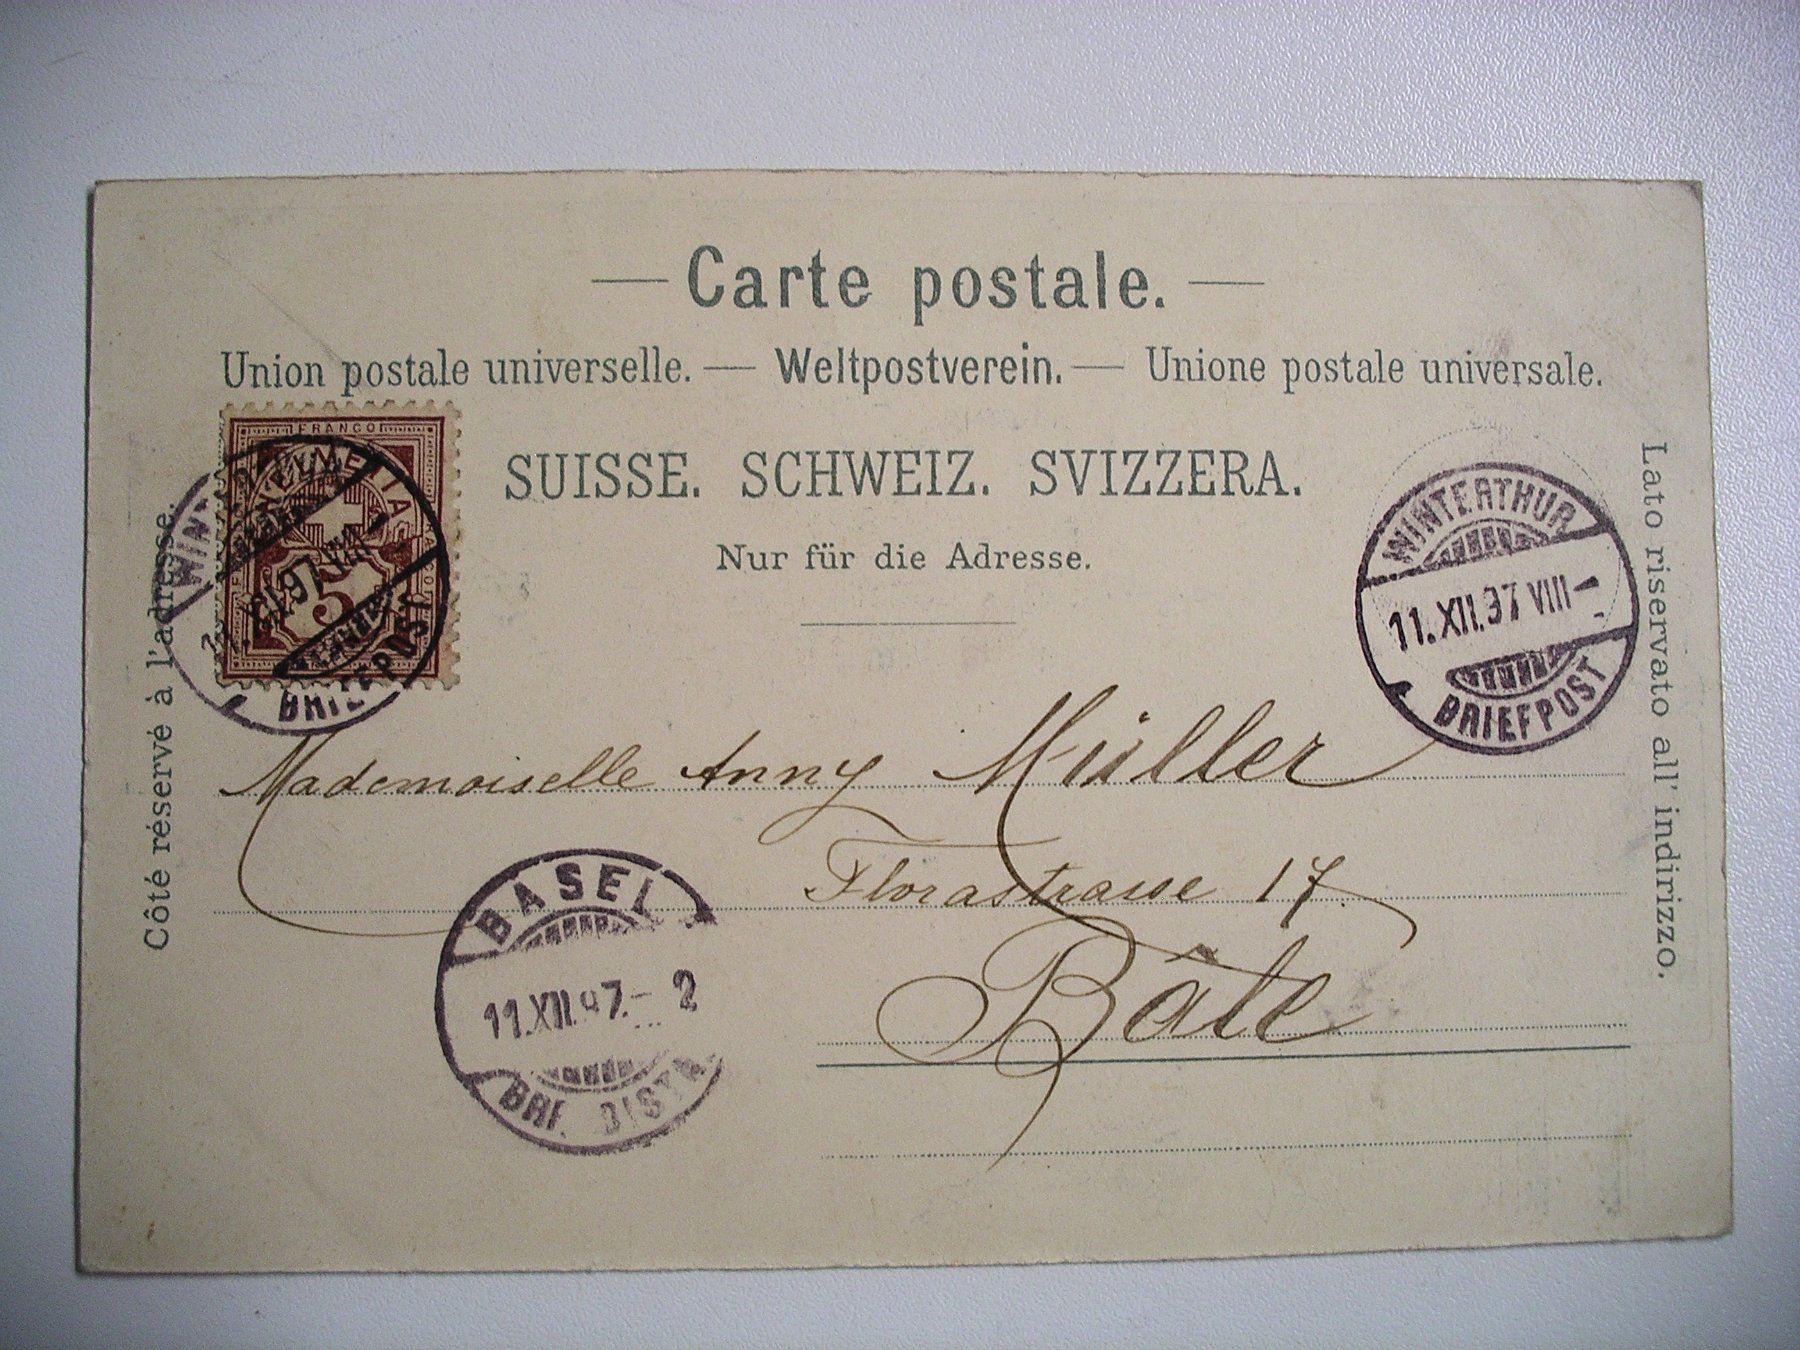 Carte postale.
Union postale universelle. — Weltpostverein. — Unione postale universale.
SUISSE. SCHWEIZ. SVIZZERA.
Nur für die Adresse.
Côté réservé à l'adresse.
Lato riservato all' indirizzo.
FRANCO
HELVETIA
5
BRIEFPOST
WINTERTHUR
11.XII.97 VIII-
BRIEFPOST
Mademoiselle Anny Müller
Florastrasse 17.
Bâle
BASEL
11.XII.97.- 2
BRF. DISTR.